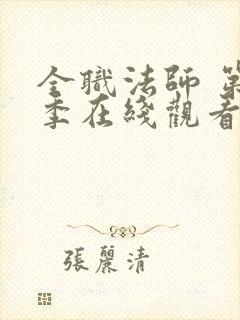 全職法師 第
季在綫觀看
張麗清